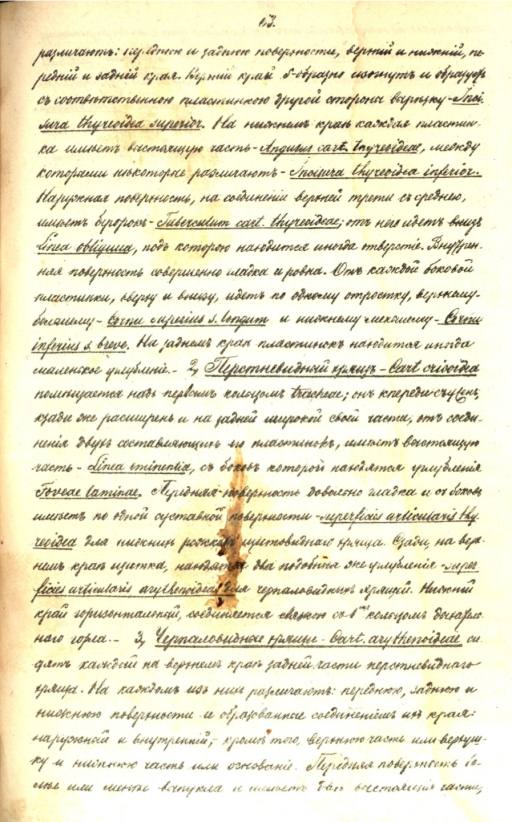 различаютъ: переднюю и заднюю поверхности, верхній и нижній, пе-
редній и задній края. Верхній край S-образно изогнутъ и образуетъ
съ соотвѣтственною пластинкою другой стороны вырѣзку - Inci-
sura thyreoidea superior. На нижнемъ краѣ каждая пластин-
ка имѣетъ выстоящую часть - Angulus cart. thyreoideae, между
которыми нѣкоторые различаютъ - Incisura thyreoidea inferior.
Наружная поверхность, на соединеніи верхней трети съ среднею,
имѣетъ бугорокъ - Tuberculum cart. thyreoideae; отъ него идетъ внизъ
Linea obliqua, подъ которою находится иногда отверстіе. Внутрен-
няя поверхность совершенно гладка и ровна. Отъ каждой боковой
пластинки, вверху и внизу, идетъ по одному отростку, верхнему-
большему - Cornu superius s. longum и нижнему меньшему - Cornu
inferius s. breve. На заднемъ краѣ пластинокъ находится иногда
маленькое углубленіе. - 2, Перстневидный хрящъ - Cart cricoidea
помѣщается надъ первымъ кольцомъ tracheae; онъ кпереди съуженъ,
кзади же расширенъ и на задней широкой своей части, отъ соеди-
ненія двухъ составляющихъ его пластинокъ, имѣетъ выстоящую
часть - Linea eminentia, съ боковъ которой находятся углубленія
Foveae laminae. Передняя поверхность довольно гладка и съ боковъ
имѣетъ по одной суставной поверхности - superficies articularis thy-
reoidea для нижнихъ рожковъ щитовиднаго хряща. Сзади, на верх-
немъ краѣ хрящика, находятся два подобныя же углубленія - super-
ficies articularis arythenoideae для черпаловидныхъ хрящей. Нижній
край горизонтальный, соединяется связкою съ 1мъ кольцомъ дыхатель-
наго горла. - 3, Черпаловидные хрящи - Cart. arythenoideae си-
дятъ каждый на верхнемъ краѣ задней части перстневиднаго
хряща. На каждомъ изъ нихъ различаютъ: переднюю, заднюю и
нижнюю поверхности и образованные соединеніемъ ихъ края:
наружный и внутренній; кромѣ того, верхнюю часть или верхуш-
ку и нижнюю часть или основаніе. Передняя поверхность бо-
лѣе или менѣе выпукла и имѣетъ два выстоянія части,